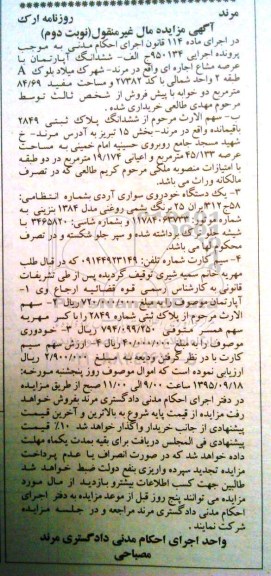 مرند
روزنامه ارک
آگهی مزایده مال غیرمنقول(نوبت دوم)
در اجرای ماده ۱۱۴ قانون اجرای احکام مدنی به موجب
پرونده اجرایی ۹۵۰۱۳۴ج الف- ششدانگ آپارتمان با
عرصه مشاع اجاره ای واقع در مرند- شهرک میلاد بلوک A
طبقه ۲ واحد شمالی با کد ۲۷۳۸۲ و مساحت مفید ۸۴/۶۹
مترمربع دو خوابه با پیش فروش از شخص ثالث توسط
مرحوم مهدی طالعی خریداری شده.
ب- سهم الارث مرحوم از ششدانگ پلاک ثبتی ۲۸۴۹
باقیمانده واقع در مرند- بخش ۱۵ تبریز به آدرس مرند- خ
شهید مسجد جامع روبروی حسینیه امام خمینی به مساحت
عرصه ۴۵/۱۳۳ مترمربع و اعیانی ۱۹/۱۷۴ مترمربع در دو طبقه
با امتیازات منصوبه ملکی مرحوم کریم طالعی که در تصرف
مالکانه وراث می باشد.
۳- یک دستگاه خودروی سواری آردی بشماره انتظامی:
۵۸ج۳۱۲ ایران ۲۵ رنگ یشمی روغنی مدل ۱۳۸۴ بنزینی به
شماره موتور: ۱۱۷۸۴۰۶۳۷۳۳ و شماره شاسی: ۳۴۶۵۸۲۰ با
شیشه شکستگی داشته و سپر جلو شکسته و در تصرف
محکوم لها می باشد.
۴- سیم کارت شماره تلفن: ۰۹۱۴۴۹۲۳۱۴۹ که در قبال طلب
مهریه خانم سمیه شیری توقیف گردیده پس از طی تشریفات
قانونی به کارشناس رسمی قوه قضائیه ارجاع وی ۱-
آپارتمان موصوف را به مبلغ ۷۲۰/۰۰۰/۰۰۰ ریال ۲- سهم
الارث مرحوم از پلاک ثبتی شماره ۲۸۴۹ را با کسر مهریه
سهم همسر متوفی ۷۹۴/۰۹۹/۲۵۰ ریال ۳- خودروی
موصوف را به مبلغ ۴۰/۰۰۰/۰۰۰ ریال ۴- ارزش سهم سیم
کارت با در نظر گرفتن ودیعه به مبلغ ۲/۹۰۰/۰۰۰ ریال
ارزیابی نموده است که اموال موصوف روز پنجشنبه مورخه:
۱۳۹۵/۰۹/۱۸ ساعت ۹/۰۰ الی ۱۱/۰۰ صبح از طریق مزایده
در دفتر اجرای احکام مدنی دادگستری مرند بفروش خواهد
رفت مزایده از قیمت پایه شروع به بالاترین و آخرین قیمت
پیشنهادی از جانب خریدار واگذار خواهد شد ۱۰٪ قیمت
پیشنهادی فی المجلس دریافت برای بقیه بمدت یکماه مهلت
داده خواهد شد که در صورت انصراف یا عدم پرداخت
مزایده تجدید سپرده واریزی بنفع دولت ضبط خواهد شد
طالبین جهت کسب اطلاعات بیشتر و بازدید از مال مورد
مزایده می توانند پنج روز قبل از موعد مزایده به دفتر اجرای
احکام مدنی دادگستری مرند مراجعه و در جلسه مزایده
شرکت نمایند.
واحد اجرای احکام مدنی دادگستری مرند
مصباحی